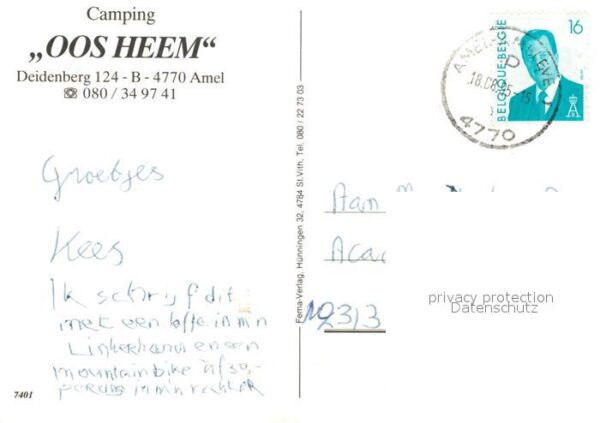 Camping
„OOS HEEM“
Deidenberg 124 - B - 4770 Amel
☎ 080 / 34 97 41
Groetjes
Kees
Ik schrijf dit
met een koffie in mn
Linkerhand en een
mountainbike
in mn rechter
7401
Fema-Verlag, Hünningen 32, 4784 St.Vith, Tel. 080 / 22 73 03
16
BELGIQUE·BELGIE
4770
Aan
Aca
2313
privacy protection
Datenschutz